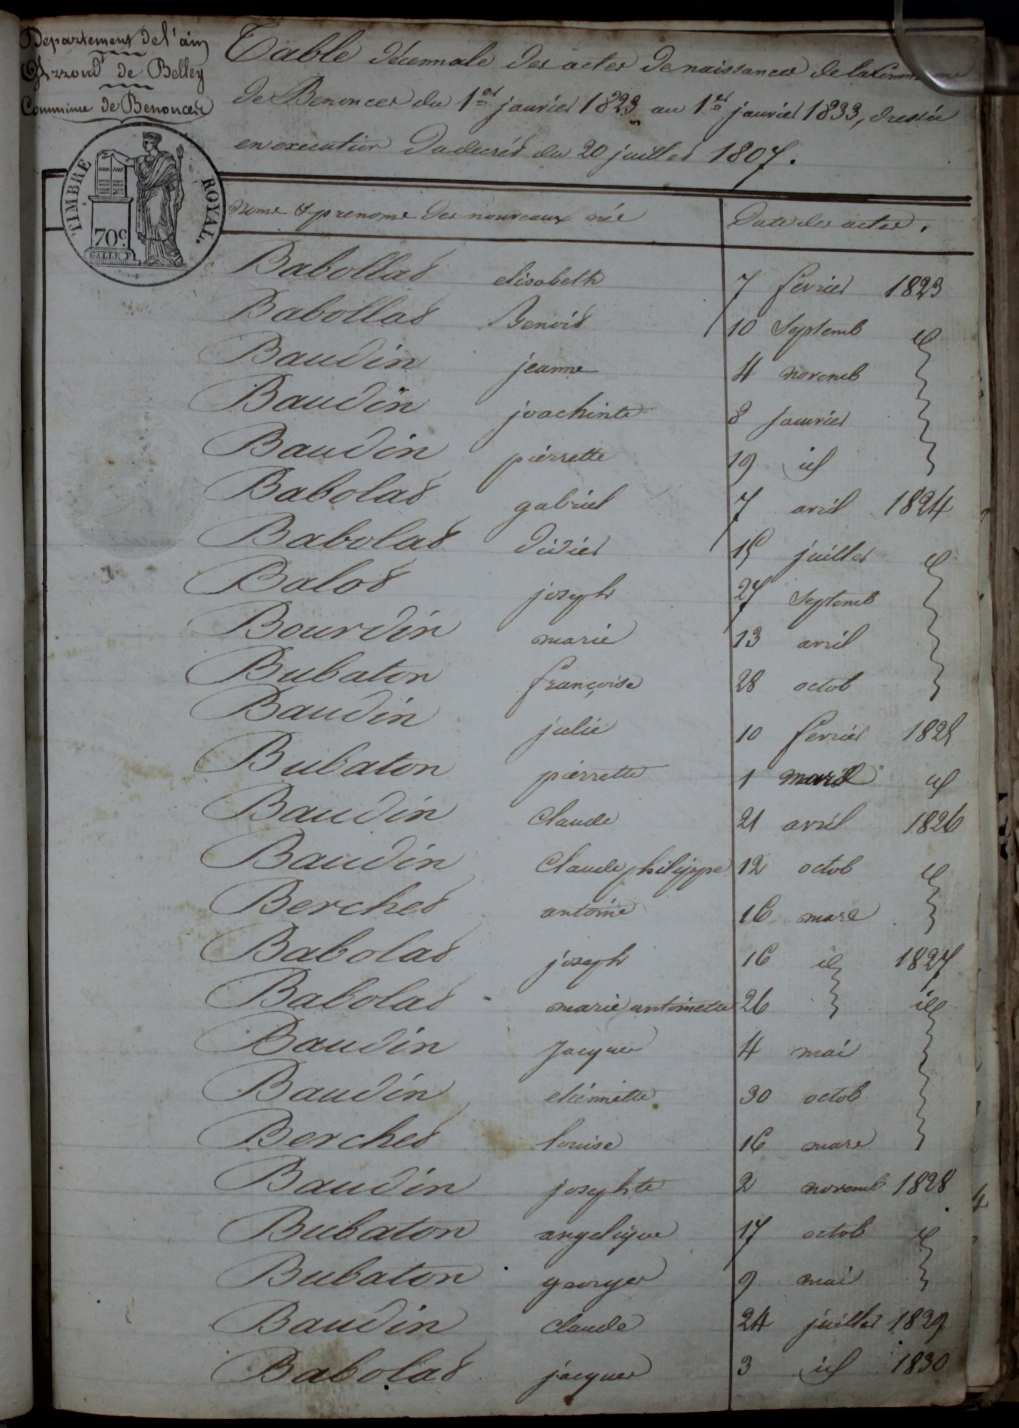 Departement de l'ain
Arrond.t de Belley
Commune de Benonces
Table décennale des actes de naissances de la Commune
de Benonces du 1er janvier 1823 au 1er janvier 1833, dressée
en execution du decret du 20 juillet 1807.
TIMBRE ROYAL.
70c
Noms & prenoms des nouveaux nés Date des actes.
Babollat elisabeth 7 fevrier 1823
Babollat Benoit 10 Septemb id
Baudin jeanne 4 novemb
Baudin joachinte 8 Janvier
Baudin pierrette 19 id
Babolat gabriel 7 avril 1824
Babolat didier 15 juillet id
Balot joseph 27 Septemb
Bourdin marie 13 avril
Bubaton françoise 28 octob
Baudin julie 10 fevrier 1825
Bubaton pierrette 1 mars id
Baudin Claude 21 avril 1826
Baudin Claude philippe 12 octob id
Berchet antoine 16 mars
Babolat joseph 16 id 1827
Babolat marie antoinette 26 id
Baudin Jacques 4 mai
Baudin etiennette 30 octob
Berchet louise 16 mars
Baudin josephte 2 novemb 1828
Bubaton angelique 17 octob id
Bubaton george 9 mai
Baudin claude 24 juillet 1829
Babolat jacques 3 id 1830